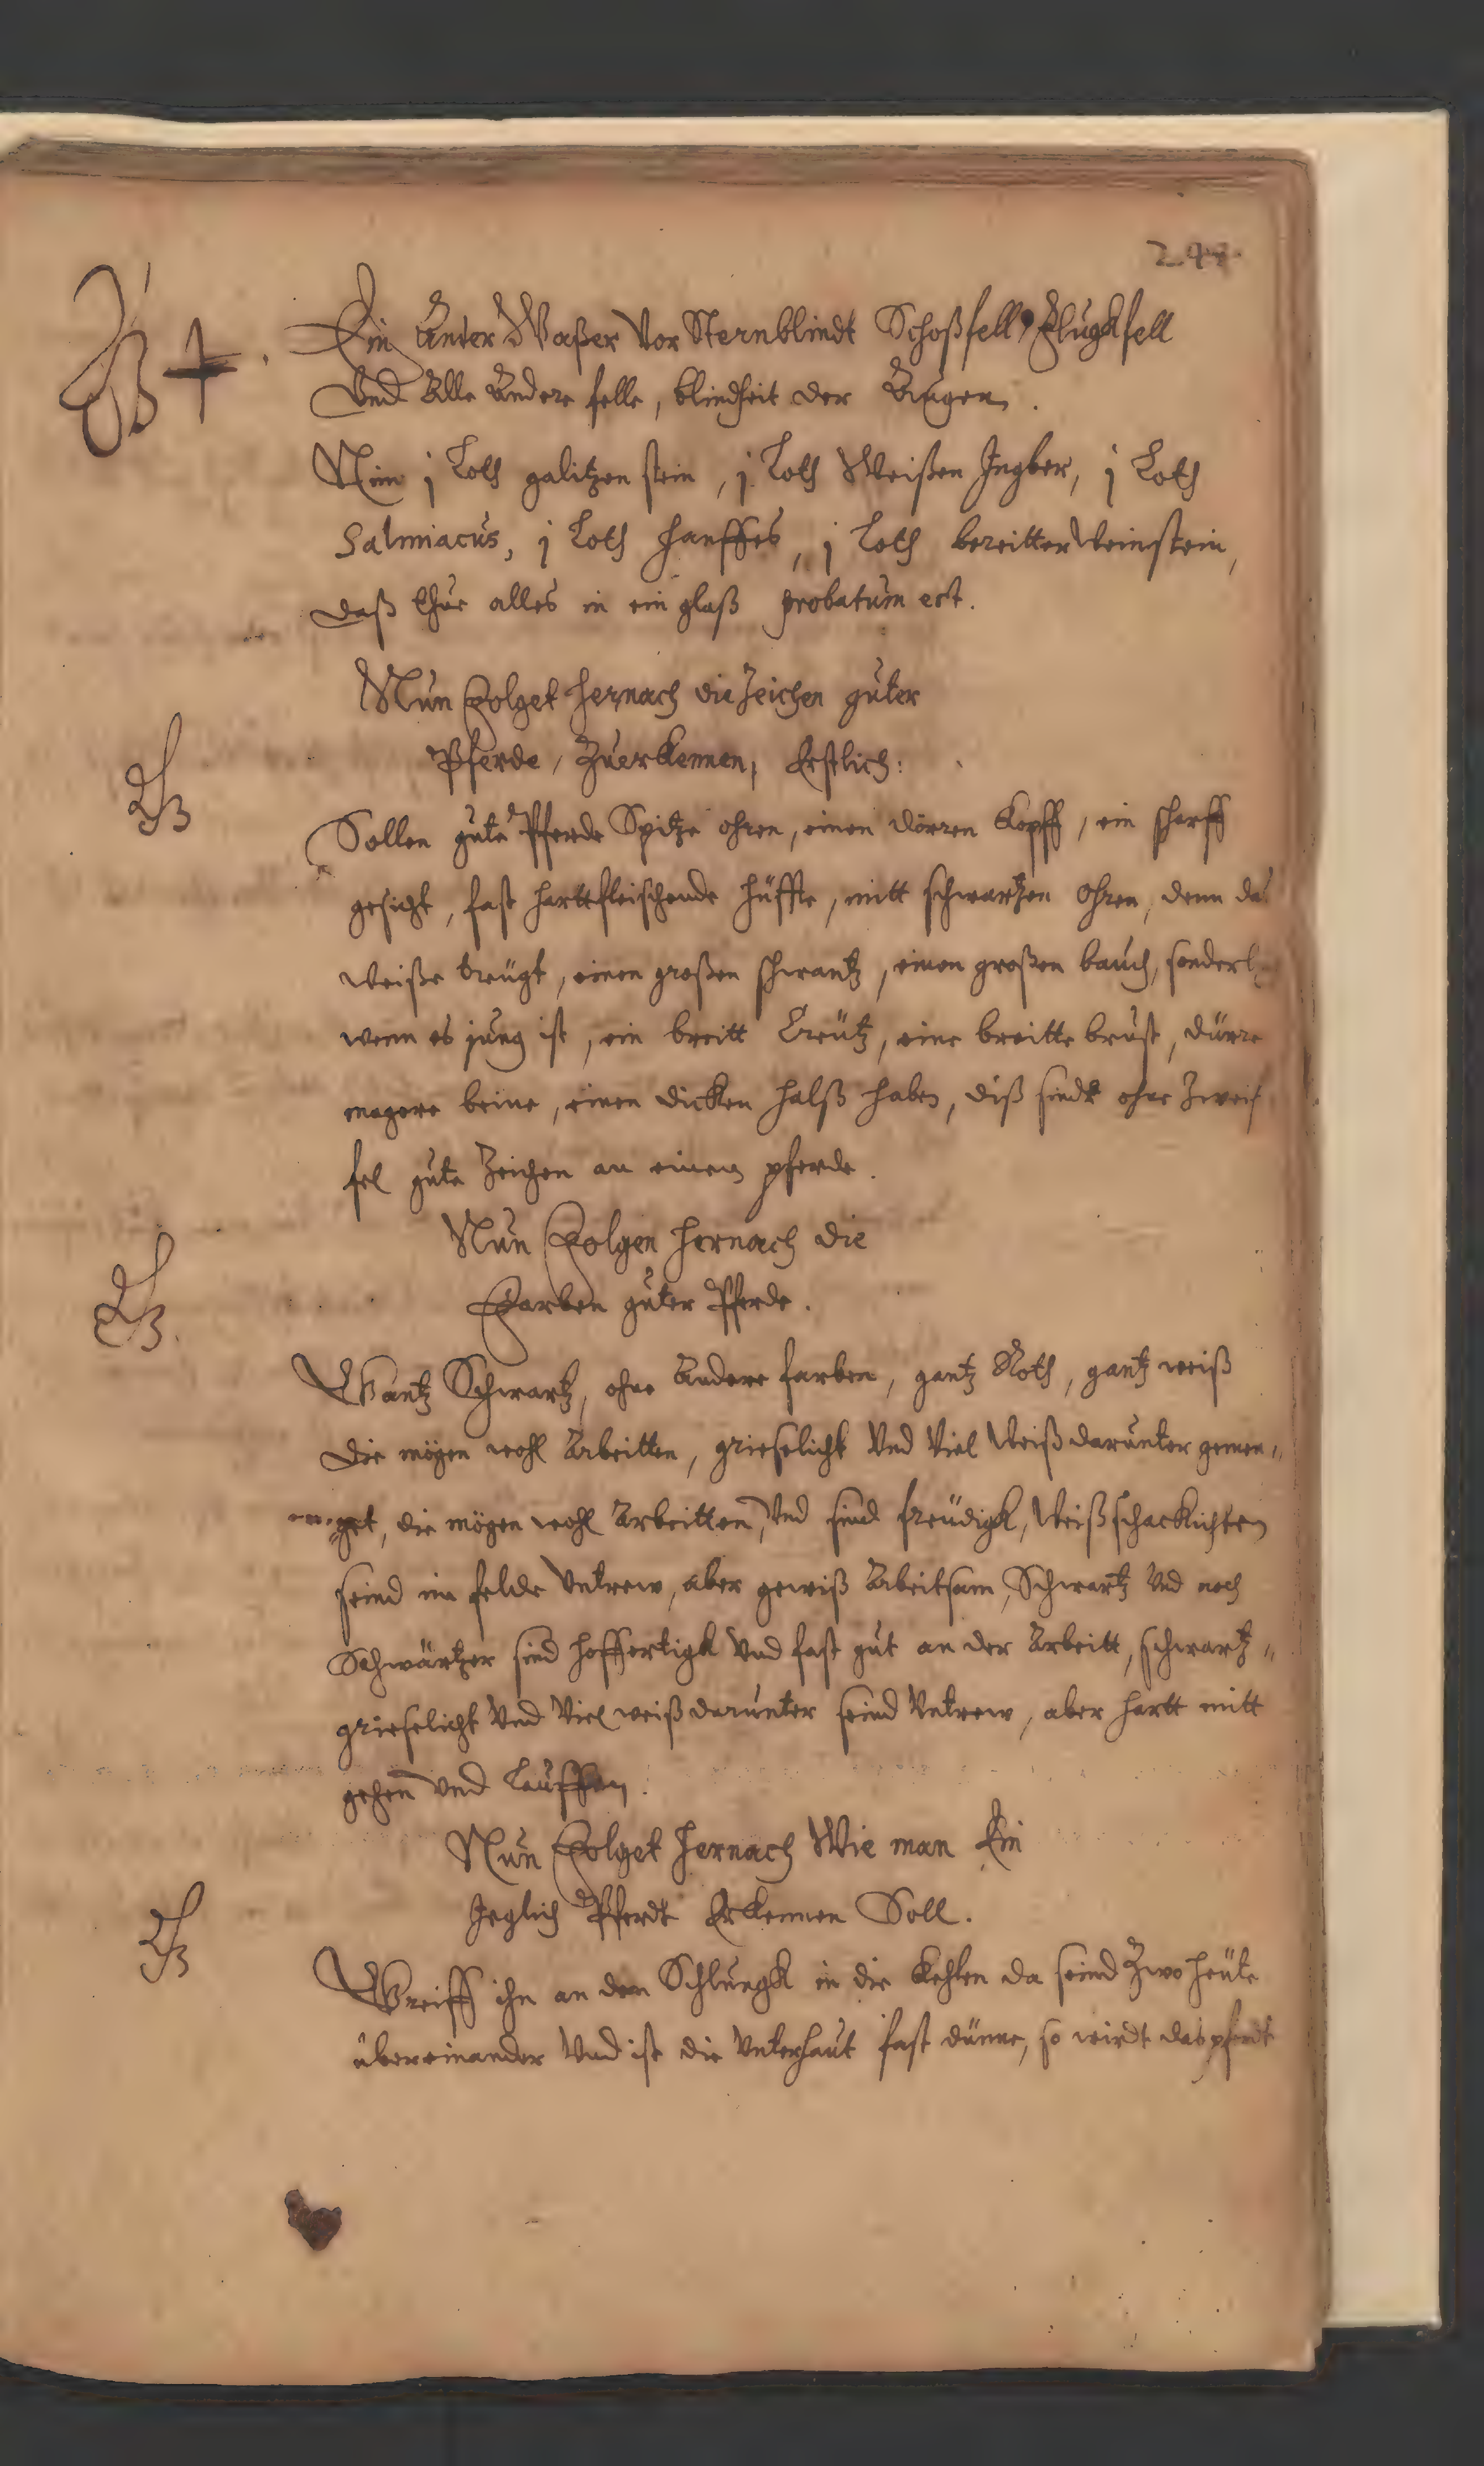 Ein Ander Waßer Vor Sternblindt Schoßfell Flugkfell
Vnd Alle Andere felle, blindheit der Augen.
Nim j Loth galitzenstein, j Loth Weißen Ingber, j Loth
Salmiacus, j Loth Hanffes, j Loth bereitter Weinstein,
daß thue alles in ein glaß probatum est.
Nun Folget hernach die Zeichen guter
Pferde, Zuerkennen, Erstlich:
Sollen gute Pferde Spitze ohren, einen dörren Kopff, ein scharff
gesicht, fast harttfleischende hüffte, mitt schwartzen ohren, denn das
weiße treugt, einen großen schwantz, einen großen bauch, sonderl
wenn es jung ist, ein breitt Creütz, eine breitte brust, dürre
magere beine, einen dicken halß haben, diß sindt ohne Zweif
fel gute Zeichen an einem pferde.
Nun Folgen hernach die
Farben guter Pferde.
Gantz Schwartz, ohne Andere farben, gantz Roth, gantz weiß
die mögen wohl Arbeitten, grieselicht Vnd Viel Weiß darunter gemen„
get, die mögen wohl Arbeitten, Vnd sind freüdigk, Weißschacklichten
seind im felde Vntrew, aber gewiß Arbeitsam, Schwartz Vnd noch
Schwärtzer sind hoffertigk Vnd fast gut an der Arbeitt, schwartz„
grieselicht Vnd Viel weiß darunter seind Vntrew, aber hartt mitt
gehen Vnd Lauffen.
Nun Folget hernach Wie man Ein
Jeglich Pferdt Erkennen Soll.
Greiff ihn an den Schlungk in die Kehlen da seind Zwo heüte
übereinander Vnd ist die Vnterhaut fast dünne, so wirdt das pferdt